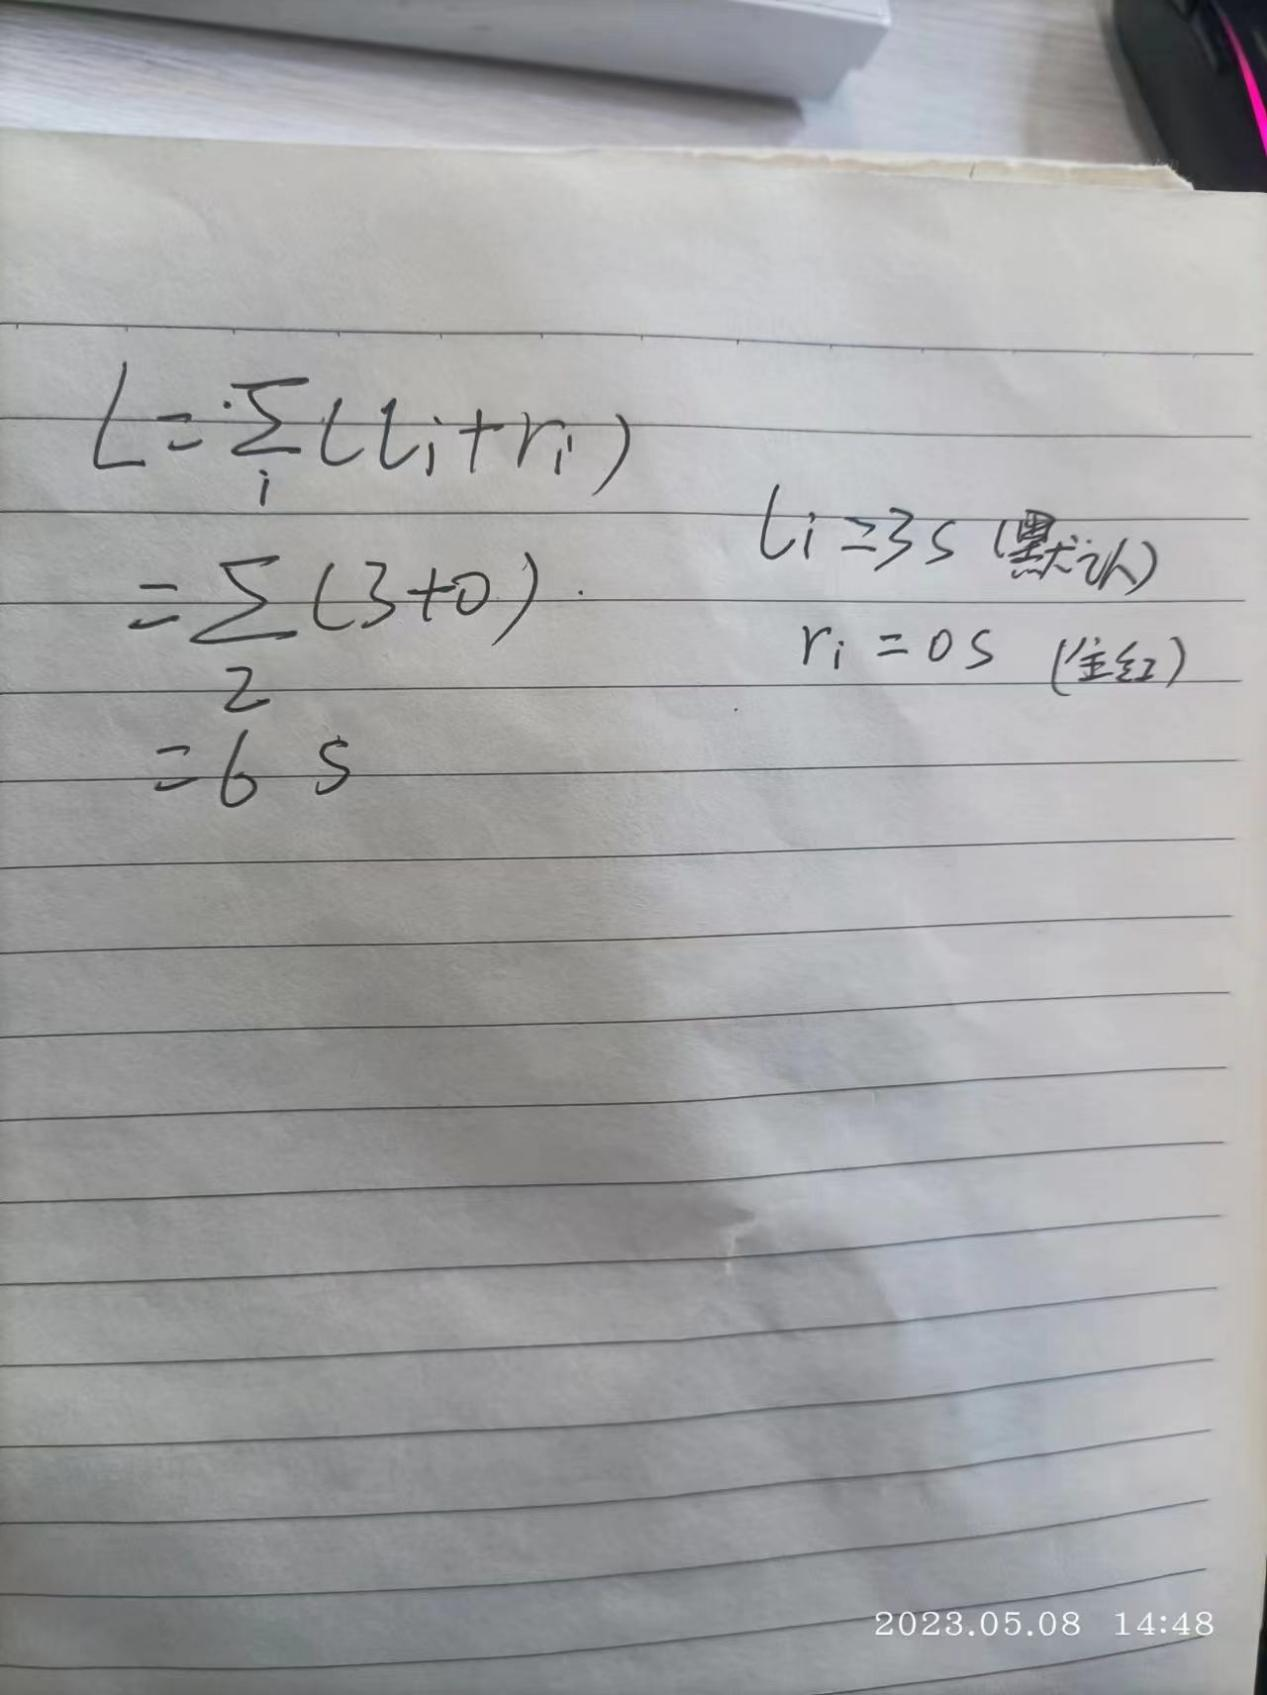 L=∑(li+ri)
i
=∑(3+0)
2
=6 s
li=3s(默认)
ri=0s (全红)
2023.05.08 14:48